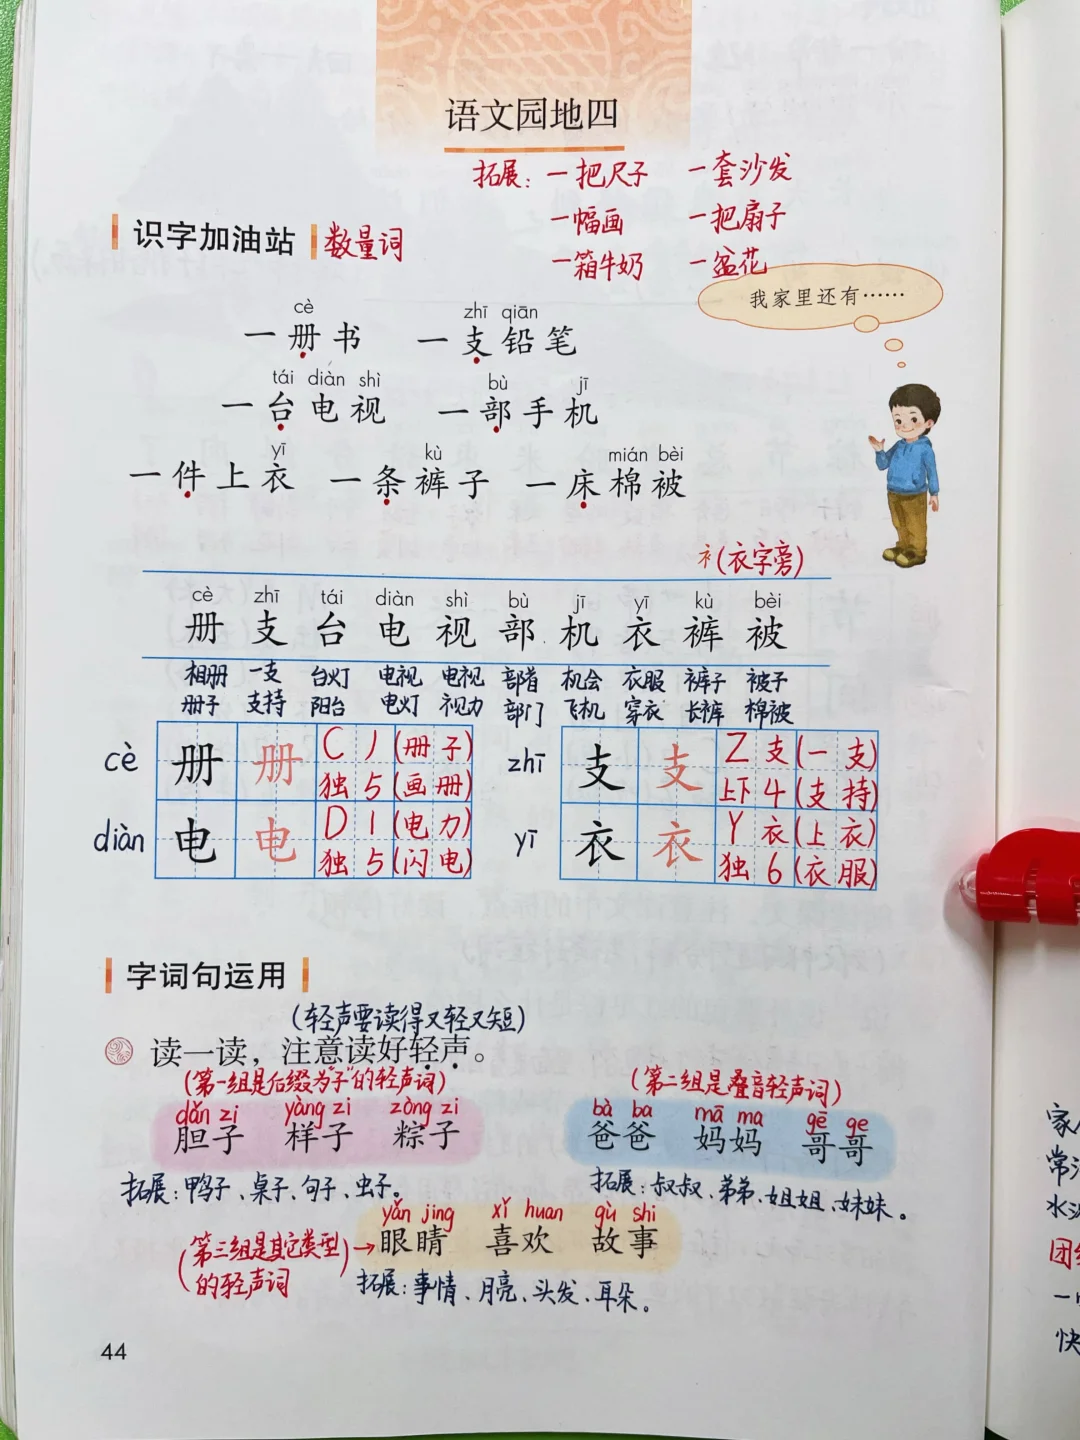 语文园地四
拓展：一把尺子 一套沙发
一幅画 一把扇子
一箱牛奶 一盆花
识字加油站 数量词
我家里还有……
cè zhī qiān
一册书 一支铅笔
tái diàn shì bù jī
一台电视 一部手机
yī kù mián bèi
一件上衣 一条裤子 一床棉被
衤(衣字旁)
cè zhī tái diàn shì bù jī yī kù bèi
册 支 台 电 视 部 机 衣 裤 被
相册 一支 台灯 电视 电视 部首 机会 衣服 裤子 被子
册子 支持 阳台 电灯 视力 部门 飞机 穿衣 长裤 棉被
cè 册 册 C 丿(册子)
独 5 (画册)
zhī 支 支 Z 支(一支)
上下 4 (支持)
diàn 电 电 D 丨(电力)
独 5 (闪电)
yī 衣 衣 Y 衣(上衣)
独 6 (衣服)
字词句运用
(轻声要读得又轻又短)
读一读，注意读好轻声。
(第一组是后缀为“子”的轻声词) (第二组是叠音轻声词)
dǎn zi yàng zi zòng zi bà ba mā ma gē ge
胆子 样子 粽子 爸爸 妈妈 哥哥
拓展：鸭子、桌子、句子、虫子。 拓展：叔叔、弟弟、姐姐、妹妹。
yǎn jing xǐ huan gù shi
(第三组是其它类型的轻声词)→ 眼睛 喜欢 故事
拓展：事情、月亮、头发、耳朵。
44
常
水
团
一
快